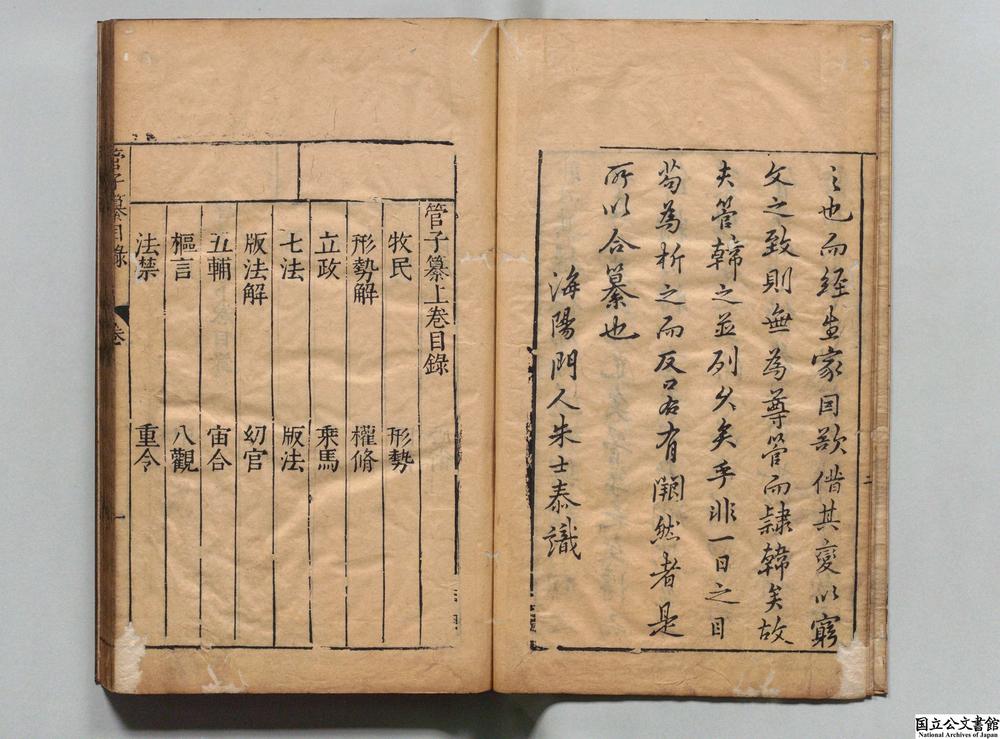 之也而經生家因欲借其變以窮
文之致則無為尊管而隷韓矣故
夫管韓之並列久矣乎非一日之目
苟為析之而反若有闕然者是
所以合纂也
海陽門人朱士泰識
二
管子纂上卷目錄
牧民 形勢
形勢解 權脩
立政 乗馬
七法 版法
版法解 幼官
五輔 宙合
樞言 八觀
法禁 重令
管子纂目錄 卷 一
国立公文書館
National Archives of Japan